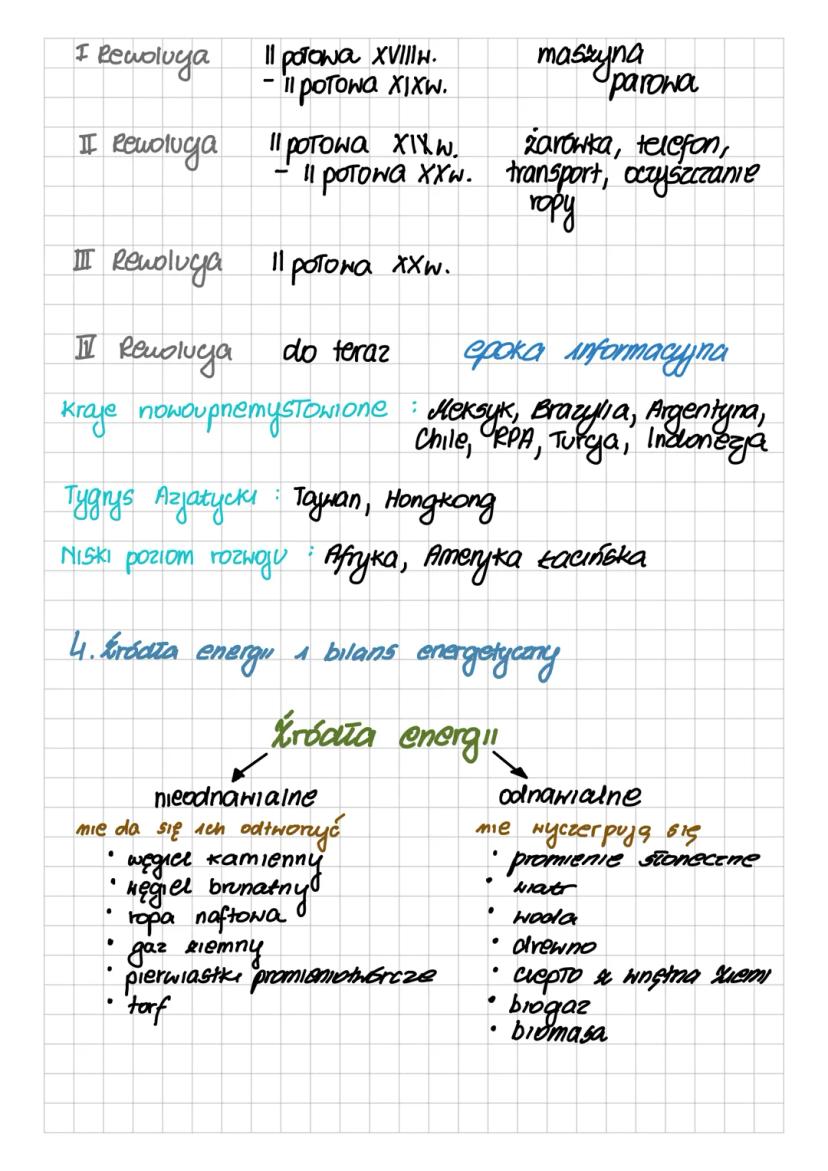 I Rewolucja II połowa XVIIIw. maszyna
- II połowa XIXw. parowa
II Rewolucja II połowa XIXw. żarówka, telefon,
- II połowa XXw. transport, oczyszczanie
ropy
III Rewolucja II połowa XXw.
IV Rewolucja do teraz epoka informacyjna
Kraje nowouprzemysłowione : Meksyk, Brazylia, Argentyna,
Chile, RPA, Turcja, Indonezja
Tygrys Azjatycki : Tajwan, Hongkong
Niski poziom rozwoju : Afryka, Ameryka Łacińska
4. Źródła energii i bilans energetyczny
Źródła energii
nieodnawialne odnawialne
nie da się ich odtworzyć nie wyczerpują się
• węgiel kamienny • promienie słoneczne
• węgiel brunatny • wiatr
• ropa naftowa • woda
• gaz ziemny • drewno
• pierwiastki promieniotwórcze • ciepło z wnętrza Ziemi
• torf • biogaz
• biomasa